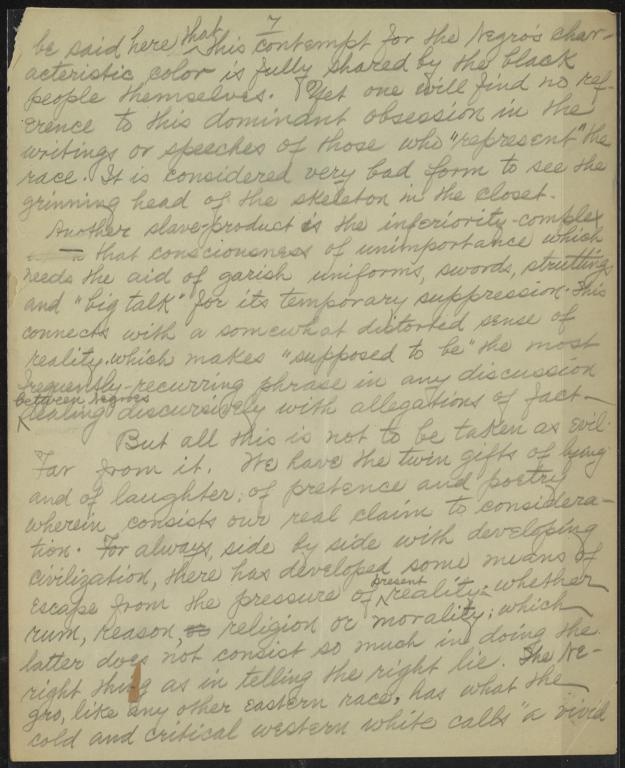 7
be said here that this contempt for the Negro's char-
acteristic color is fully shared by the black
people themselves. Yet one will find no ref-
erence to this dominant obsession in the
writings or speeches of those who "represent" the
race. It is considered very bad form to see the
grinning head of the skeleton in the closet.
Another slave-product is the inferiority-complex
— that consciousness of unimportance which
needs the aid of garish uniforms, swords, struttings
and "big talk" for its temporary suppression. This
connects with a somewhat distorted sense of
reality which makes "supposed to be" the most
frequently-recurring phrase in any discussion
between Negroes
dealing discursively with allegations of fact—
But all this is not to be taken as evil.
Far from it. We have the twin gifts of lying
and of laughter; of pretence and poetry
wherein consists our real claim to considera-
tion. For always, side by side with developing
civilization, there has developed some means of
escape from the pressure of present reality: whether
rum, reason, or religion or morality; which
latter does not consist so much in doing the
right thing as in telling the right lie. The Ne-
gro, like any other eastern race, has what the
cold and critical western white calls "a vivid